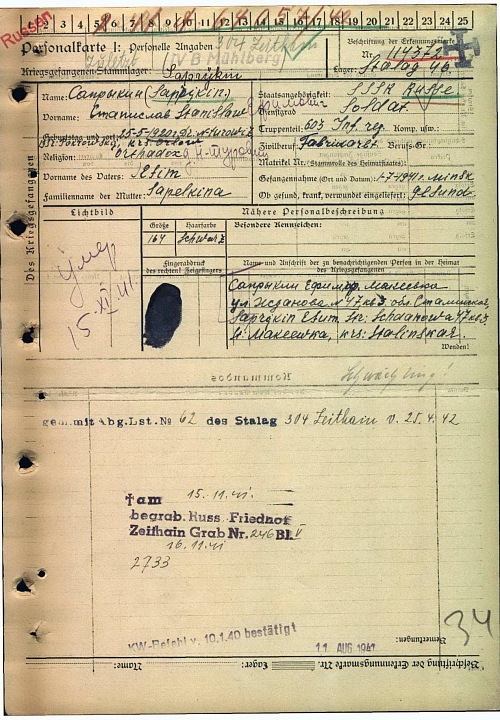 1 2 3 4 5 6 7 8 9 10 11 12 13 14 15 16 17 18 19 20 21 22 23 24 25
Russen
Personalkarte I: Personelle Angaben
304 Zeithain
Beschriftung der Erkennungsmarke
Nr. 114372
Kriegsgefangenen-Stammlager:
IV B Mühlberg
Lager: Stalag 4b.
Des Kriegsgefangenen
Name: Сапрыкин (Saprykin)
Staatsangehörigkeit: SSSR Russe
Vorname: Станислав Stanislaw
Dienstgrad: Soldat
Truppenteil: 603 Inf. reg. Komp. usw.:
Geburtstag und -ort: 25-5-1920
Zivilberuf: Berufs-Gr.:
Religion: orthodox
Matrikel Nr. (Stammrolle des Heimatstaates):
Vorname des Vaters: Efim
Gefangennahme (Ort und Datum): 1-7-1941 г. Minsk
Familienname der Mutter: Sapelkina
Ob gesund, krank, verwundet eingeliefert: gesund
Lichtbild
Nähere Personalbeschreibung
Größe
Haarfarbe
Besondere Kennzeichen:
164
schwarz
Fingerabdruck
des rechten! Zeigefingers
Name und Anschrift der zu benachrichtigenden Person in der Heimat
des Kriegsgefangenen
умер
15.XI.41.
Сапрыкин Ефим Макеевка
ул. Жданова № 47 кв 3 обл. Сталинская
Saprykin Efim. Str. Schdanowa 47 kw 3.
Wenden!
Kommandos
gem. mit Abg.Lst.№ 62 des Stalag 304 Zeithain v. 25.4.42
† am 15.11.41.
begrab. Russ. Friedhof
Zeithain Grab Nr. 246 Bl. V
16.11.41
2733
KW-Befehl v. 10.1.40 bestätigt
11. AUG. 1941
Bemerkungen:
34
Name:
Lager:
Beschriftung der Erkennungsmarke Nr.